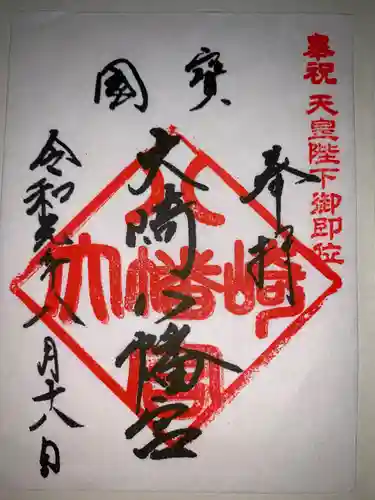 奉祝 天皇陛下御即位
國寳
奉拝
大崎八幡宮
令和元年八月十八日